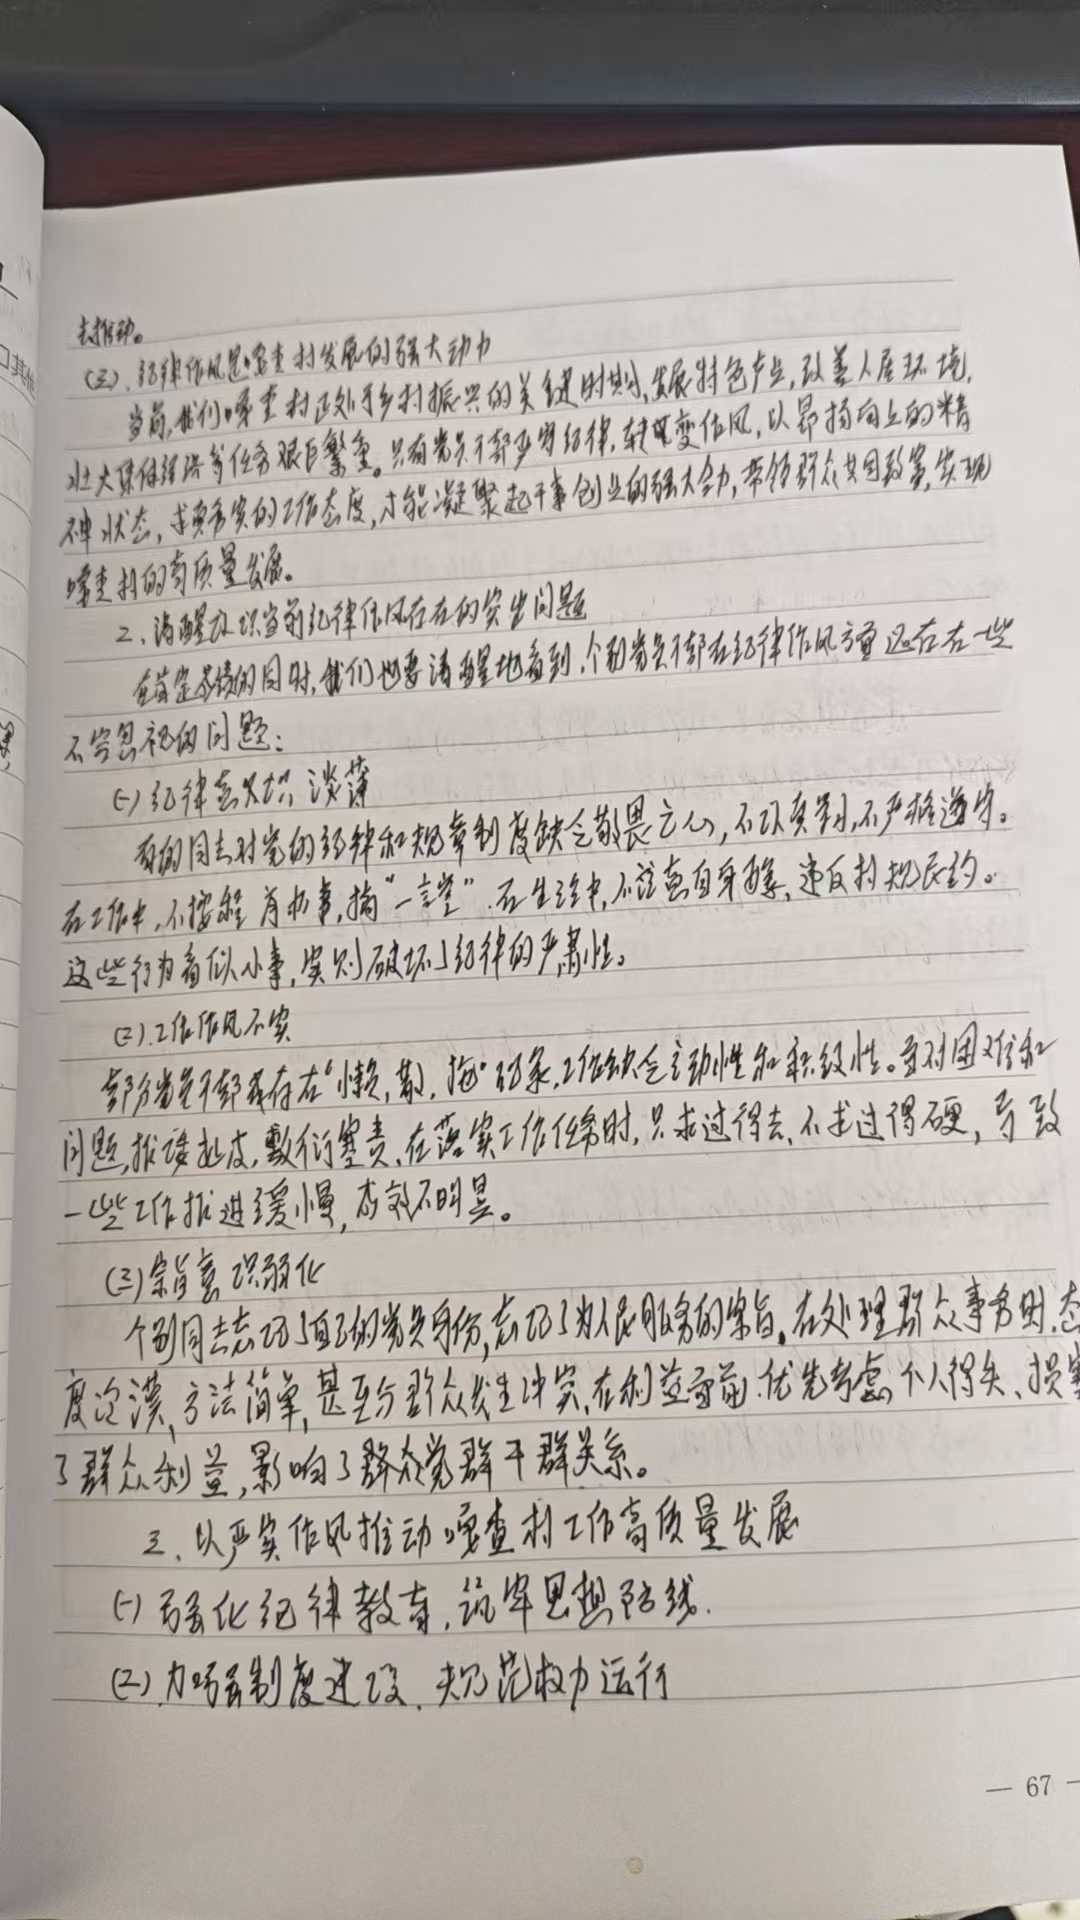 去推动。
(三)、纪律作风是嘎查村发展的强大动力
当前,我们嘎查村正处于乡村振兴的关键时期,发展特色产业,改善人居环境,
壮大集体经济等任务艰巨繁重。只有党员干部严守纪律,转变作风,以昂扬向上的精
神状态,求真务实的工作态度,才能凝聚起干事创业的强大合力,带领群众共同致富,实现
嘎查村的高质量发展。
2、清醒认识当前纪律作风存在的突出问题
在肯定成绩的同时,我们也要清醒地看到,个别党员干部在纪律作风方面还存在一些
不容忽视的问题:
(一)纪律意识淡薄
有的同志对党的纪律和规章制度缺乏敬畏之心,不认真学习,不严格遵守。
在工作中,不按程序办事,搞“一言堂”.在生活中,不注意自身形象,违反村规民约。
这些行为看似小事,实则破坏了纪律的严肃性。
(二).工作作风不实
部分党员干部存在“懒,散,拖”现象,工作缺乏主动性和积极性。面对困难和
问题,推诿扯皮,敷衍塞责,在落实工作任务时,只求过得去,不求过得硬,导致
一些工作推进缓慢,成效不明显。
(三)宗旨意识弱化
个别同志忘记了自己的党员身份,忘记了为人民服务的宗旨,在处理群众事务时,态
度冷漠,方法简单,甚至与群众发生冲突,在利益面前.优先考虑个人得失、损害
了群众利益,影响了党群干群关系。
三、以严实作风推动嘎查村工作高质量发展
(一)强化纪律教育,筑牢思想防线.
(二).加强制度建设、规范权力运行
— 67 —